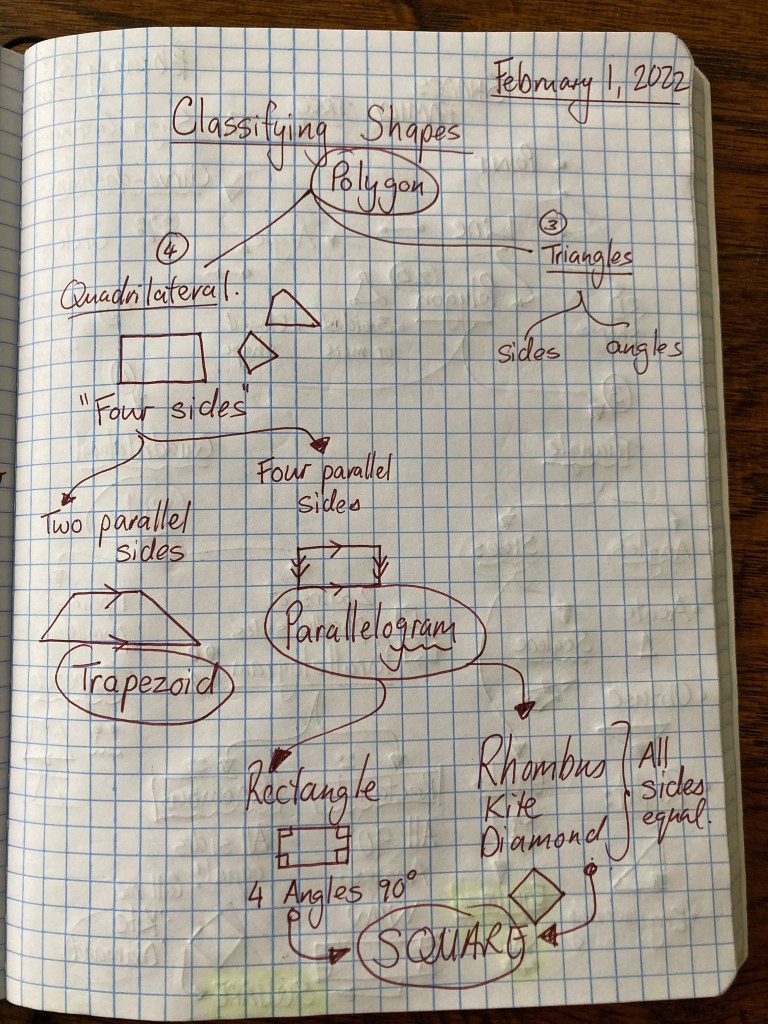 February 1, 2022
Classifying Shapes
Polygon
④
Quadrilateral.
③
Triangles
sides
angles
"Four sides"
Two parallel
sides
Four parallel
sides
Trapezoid
Parallelogram
Rectangle
4 Angles 90°
Rhombus
Kite
Diamond
All
sides
equal.
SQUARE